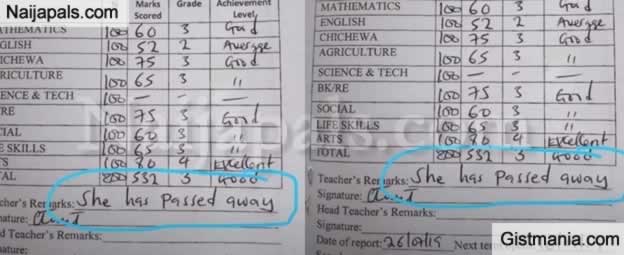 Naijapals.com
Marks Scored Grade Achievement Level
THEMATICS 100 60 3 Good
GLISH 100 52 2 Average
CHEWA 100 75 3 Good
RICULTURE 100 65 3 "
ENCE & TECH 100 — — —
/RE 100 75 3 Good
CIAL 100 60 3 "
E SKILLS 100 65 3 "
TS 100 80 4 Excellent
TAL 800 532 3 Good
cher's Remarks: She has Passed away
nature:
d Teacher's Remarks:
nature:
MATHEMATICS 100 60 3 Good
ENGLISH 100 52 2 Average
CHICHEWA 100 75 3 Good
AGRICULTURE 100 65 3 "
SCIENCE & TECH 100 — — —
BK/RE 100 75 3 Good
SOCIAL 100 60 3 "
LIFE SKILLS 100 65 3 "
ARTS 100 80 4 Excellent
TOTAL 800 532 3 Good
Teacher's Remarks: She has Passed away
Signature:
Head Teacher's Remarks:
Signature:
Date of report: 26/07/19 Next term
Naijapals.com
Gistmania.com